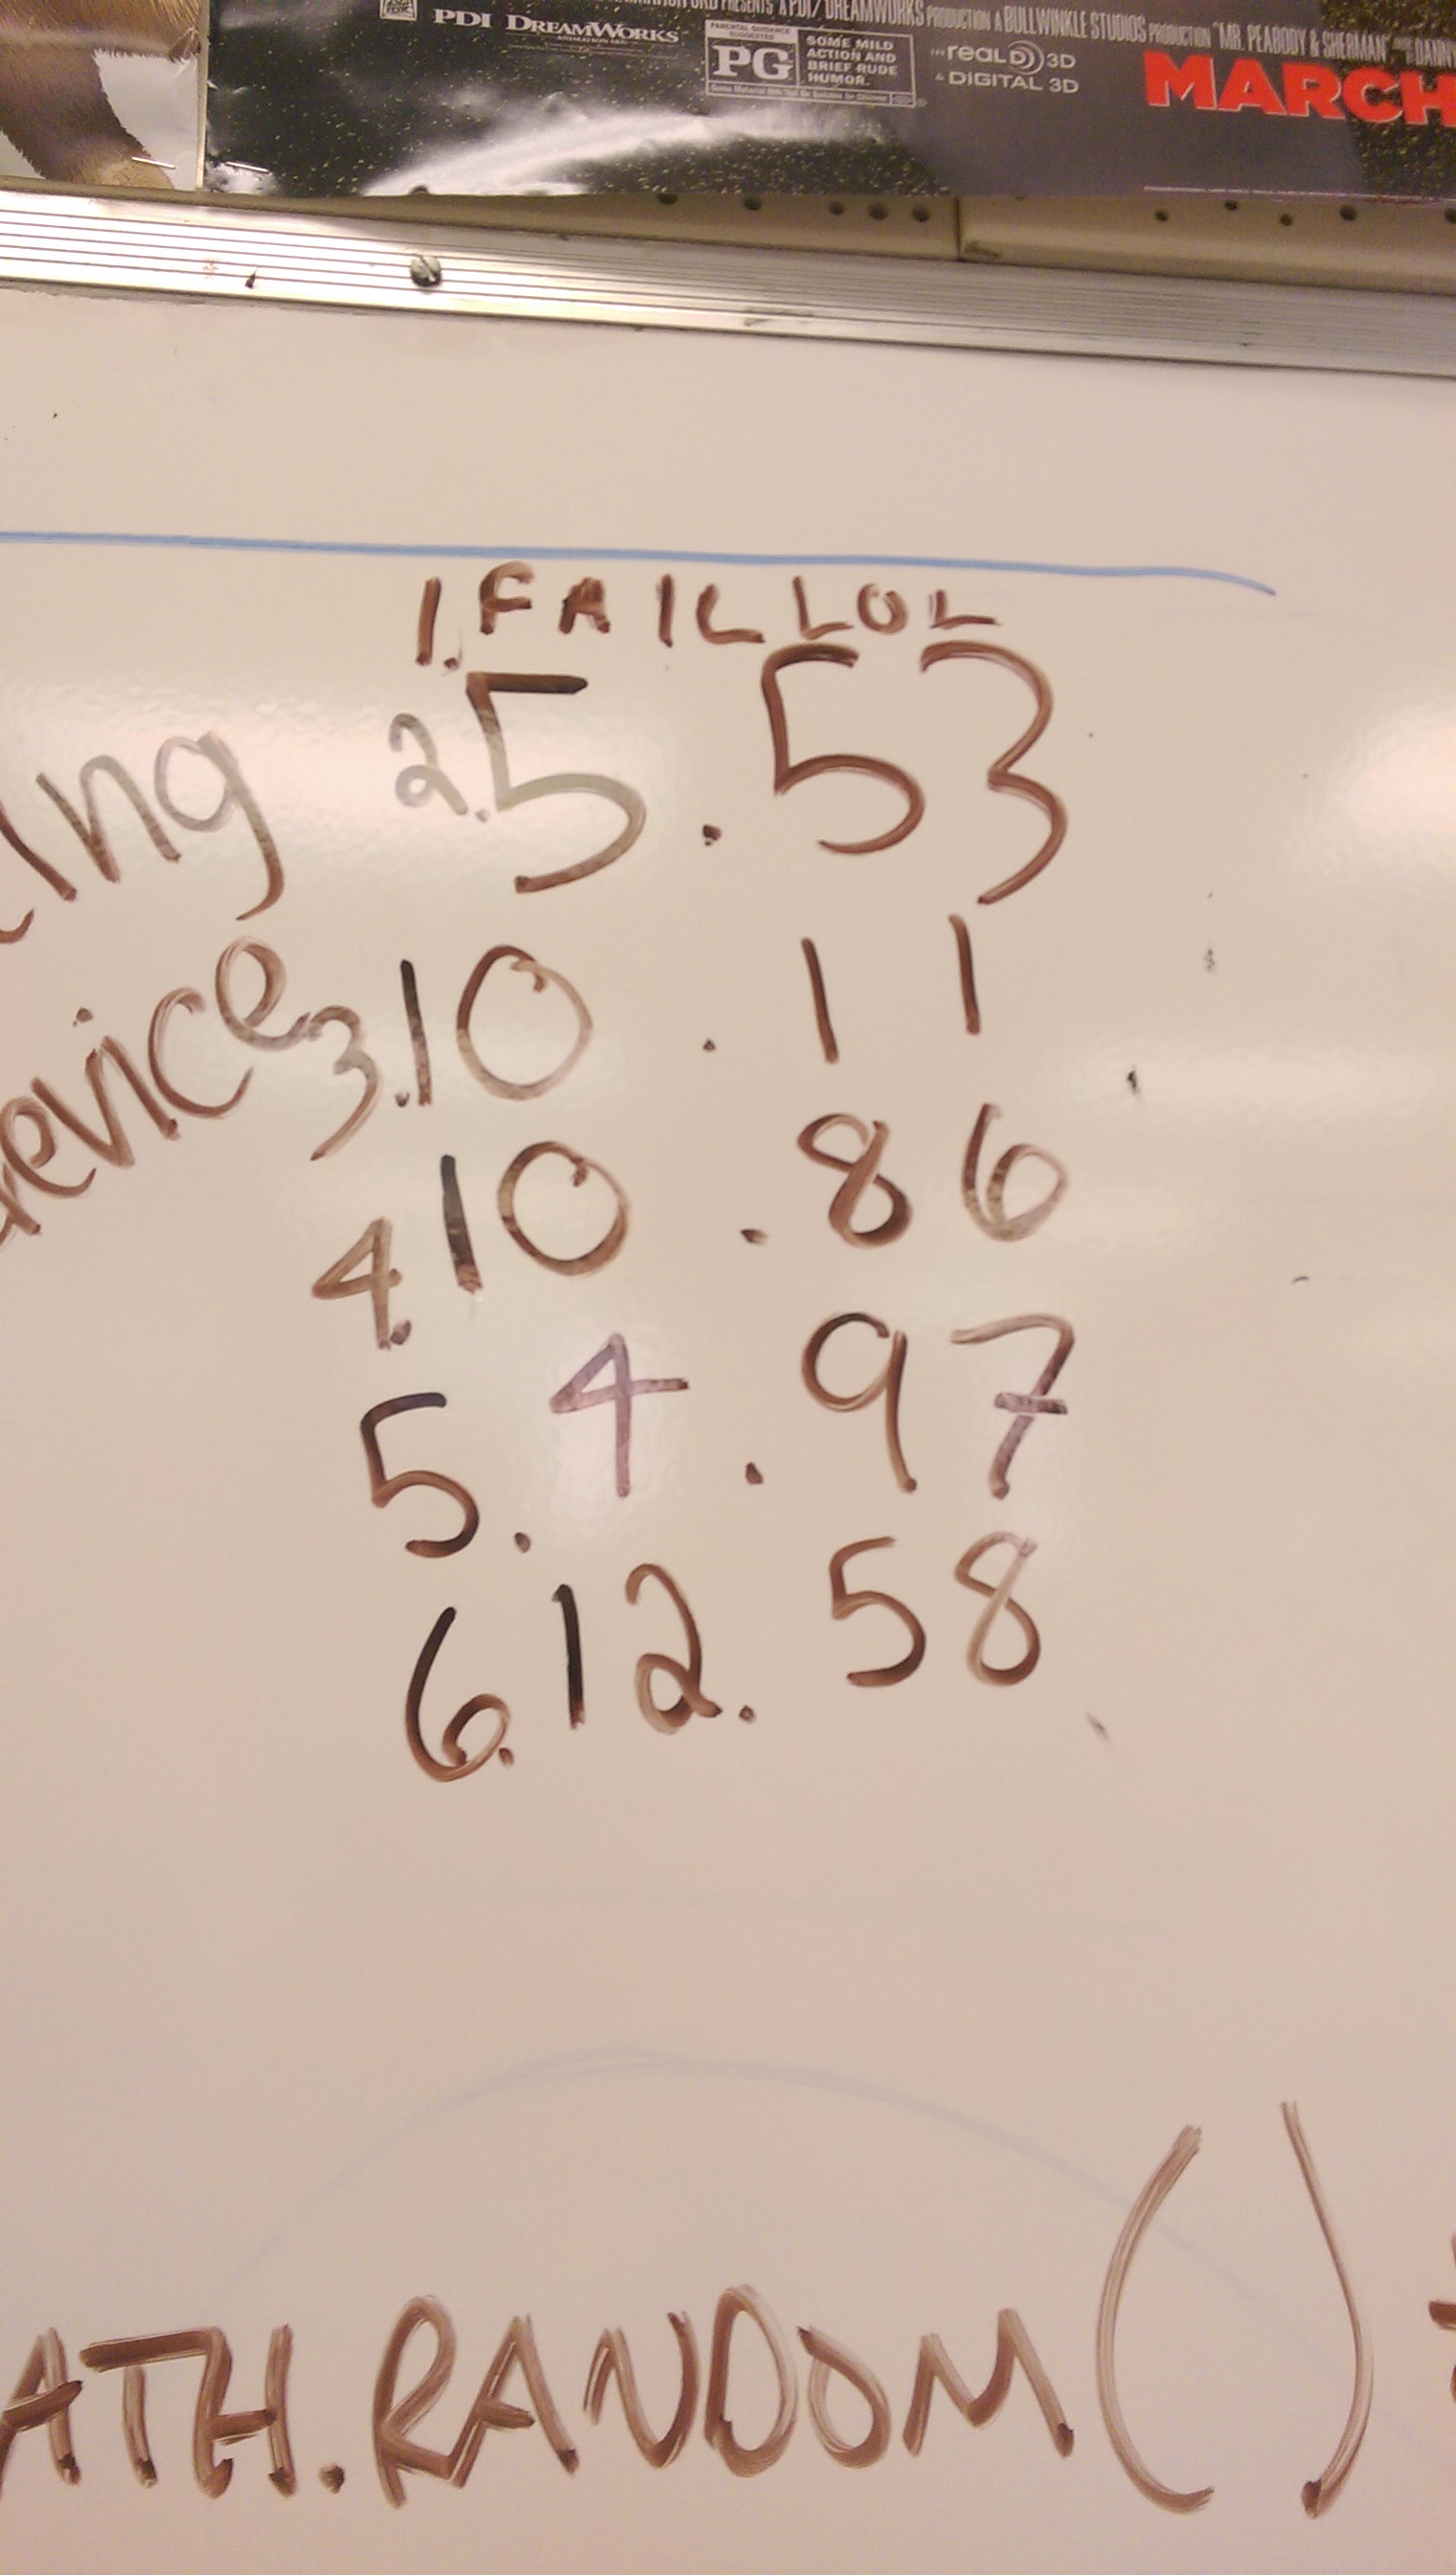 PRESENTS A PDI/DREAMWORKS PRODUCTION A BULLWINKLE STUDIOS PRODUCTION "MR. PEABODY & SHERMAN"
PDI DREAMWORKS
ANIMATION
PARENTAL GUIDANCE SUGGESTED
PG
SOME MILD
ACTION AND
BRIEF RUDE
HUMOR.
Some Material May Not Be Suitable for Children
IN REAL D 3D
& DIGITAL 3D
MARCH
1. FAIL LOL
ing 2. 5.53
evice 3. 10.11
4. 10.86
5. 4.97
6. 12.58
ATH.RANDOM()